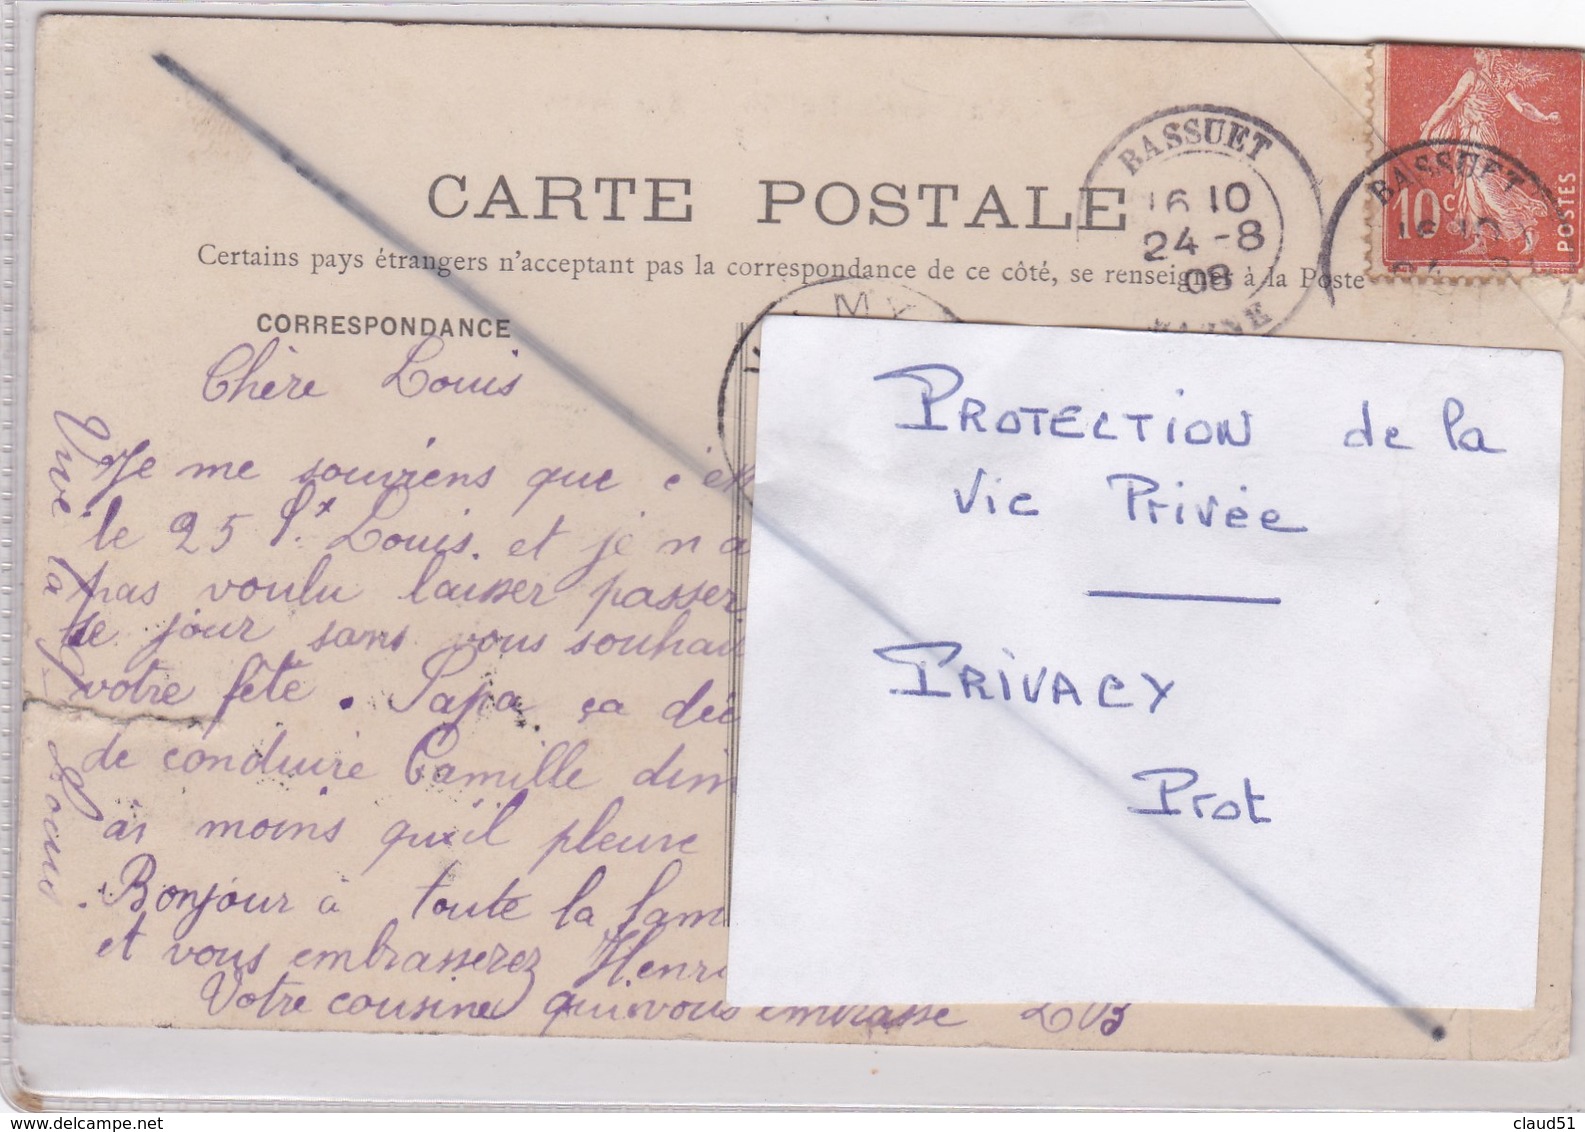 CARTE POSTALE
Certains pays étrangers n'acceptant pas la correspondance de ce côté, se renseigner à la Poste
CORRESPONDANCE
BASSUET
16 10
24 - 8
08
BASSUET
10c
POSTES
Chère Louis
Je me souviens que c'est
le 25 St Louis. et je n a
pas voulu laisser passer
se jour sans vous souhai
votre fête. Papa ça déc
de conduire Camille dim
a moins qu'il pleure
Bonjour à toute la fam
et vous embrasserez Henri
Votre cousine qui vous embrasse
Vive la
PROTECTION de la
Vie Privée
PRIVACY
Prot
www.delcampe.net
claud51